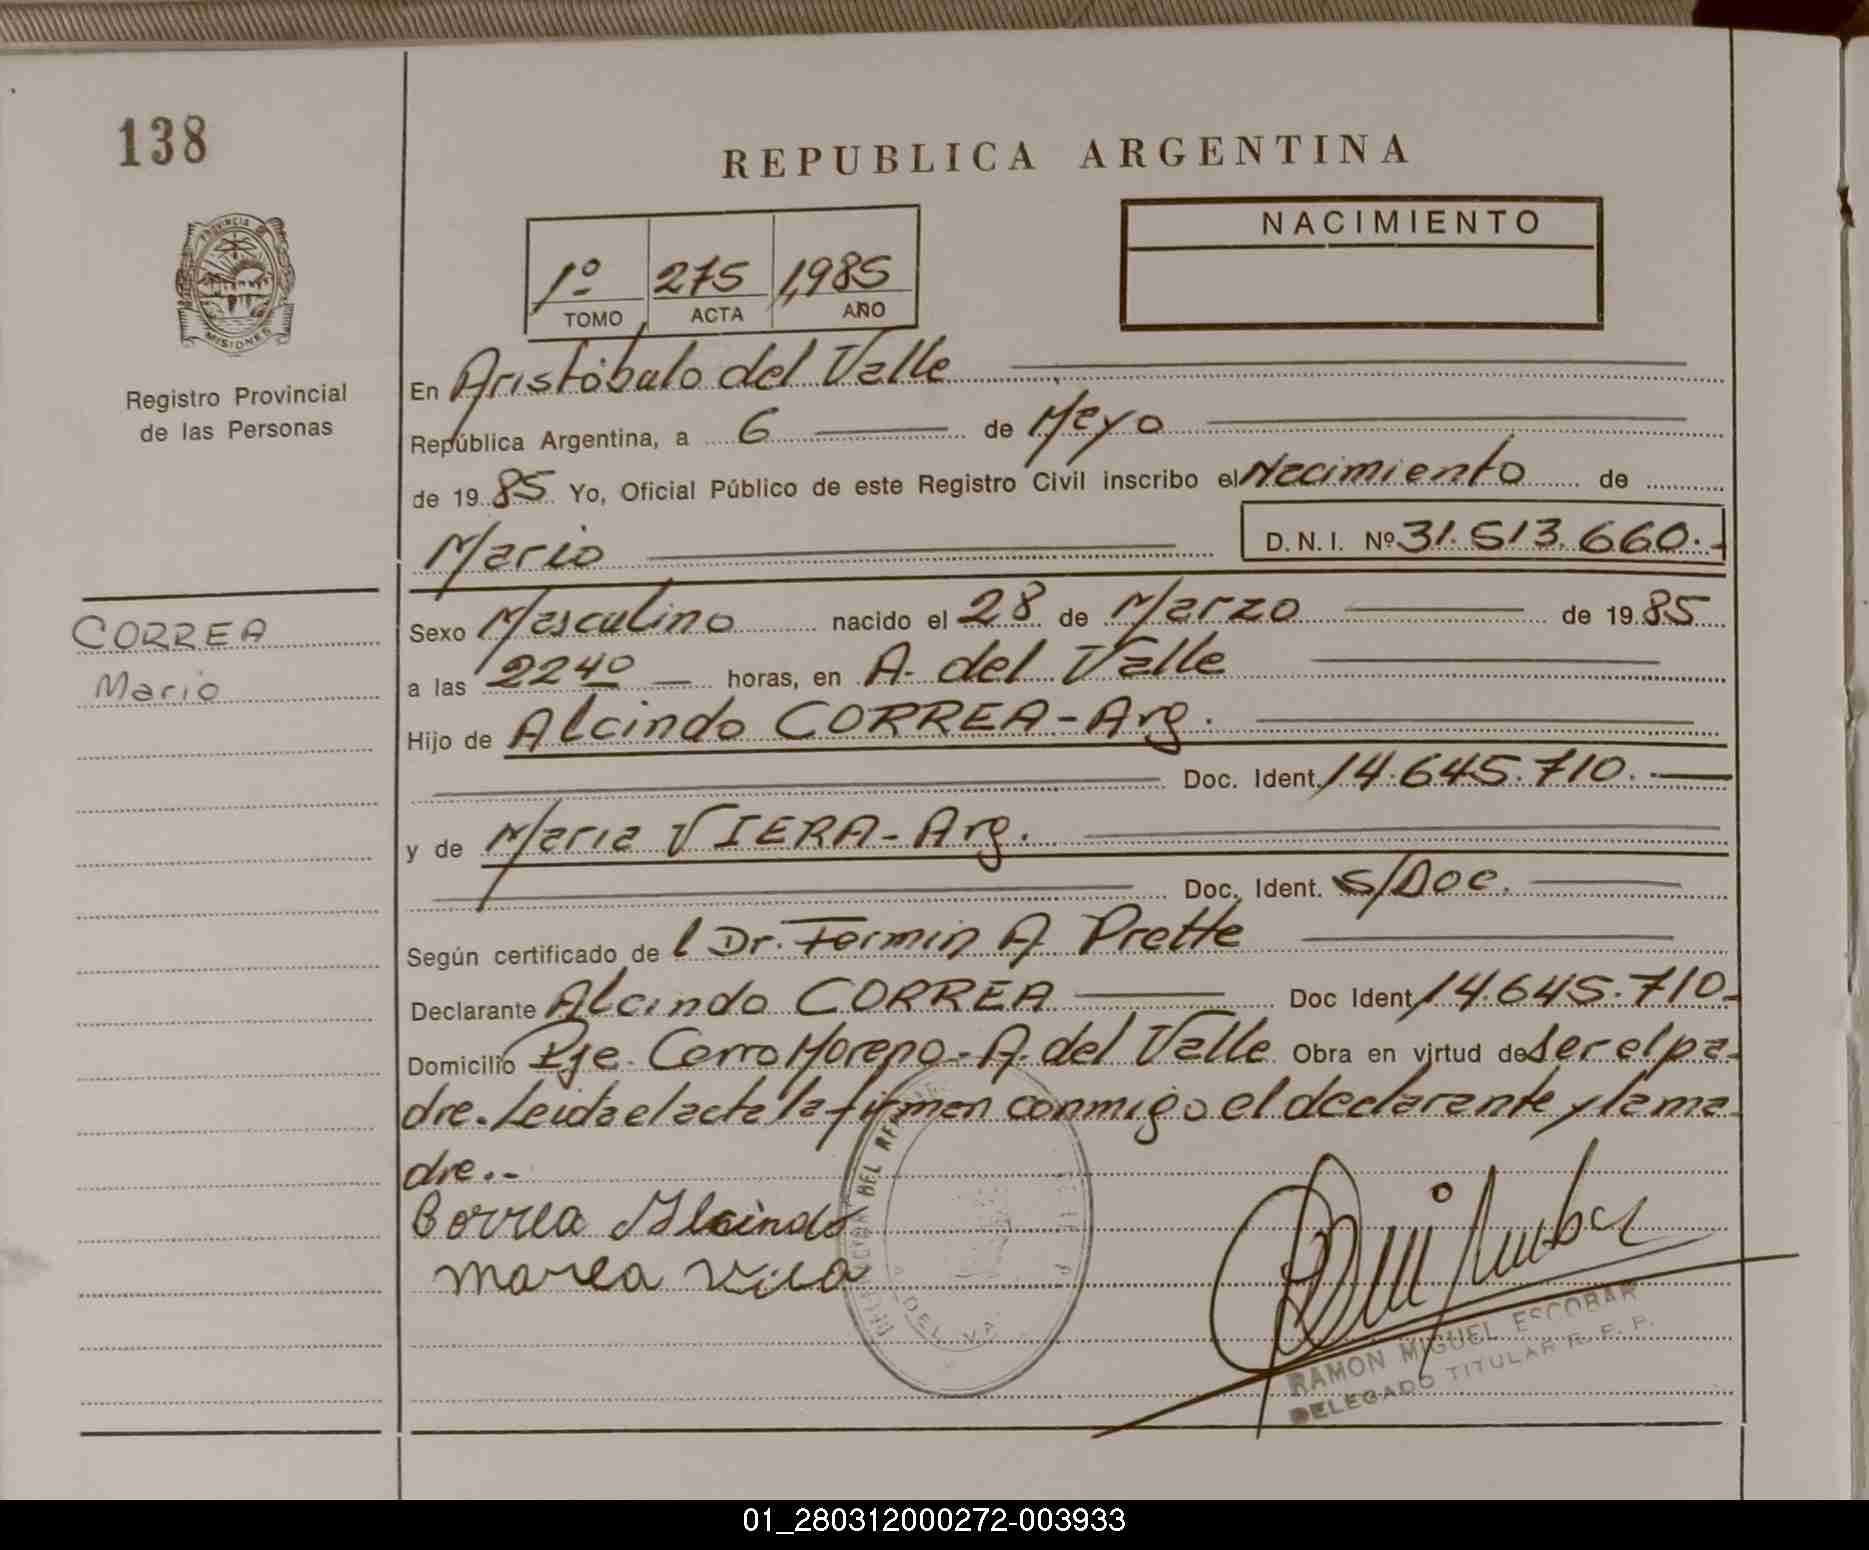 138
REPUBLICA ARGENTINA
PROVINCIA DE
MISIONES
Registro Provincial
de las Personas
1º 275 1,985
TOMO ACTA AÑO
NACIMIENTO
En Aristóbulo del Valle
República Argentina, a 6 de Mayo
de 19 85 Yo, Oficial Público de este Registro Civil inscribo el Nacimiento de
Mario D.N.I. Nº 31.513.660.-
CORREA
Mario
Sexo Masculino nacido el 28 de Marzo de 19 85
a las 22 40 horas, en A. del Valle
Hijo de Alcindo CORREA-Arg.
Doc. Ident. 14.645.710.
y de Maria VIERA-Arg.
Doc. Ident. S/Doc.
Según certificado de l Dr. Fermin A. Prette
Declarante Alcindo CORREA Doc Ident 14.645.710-
Domicilio Pje. Cerro Moreno-A. del Valle Obra en virtud de ser el pa-
dre. Leida el acta la firman conmigo el declarante y la ma-
dre.-
Correa Alcindo
DEL VA
RAMON MIGUEL ESCOBAR
DELEGADO TITULAR R. P. P.
01_280312000272-003933